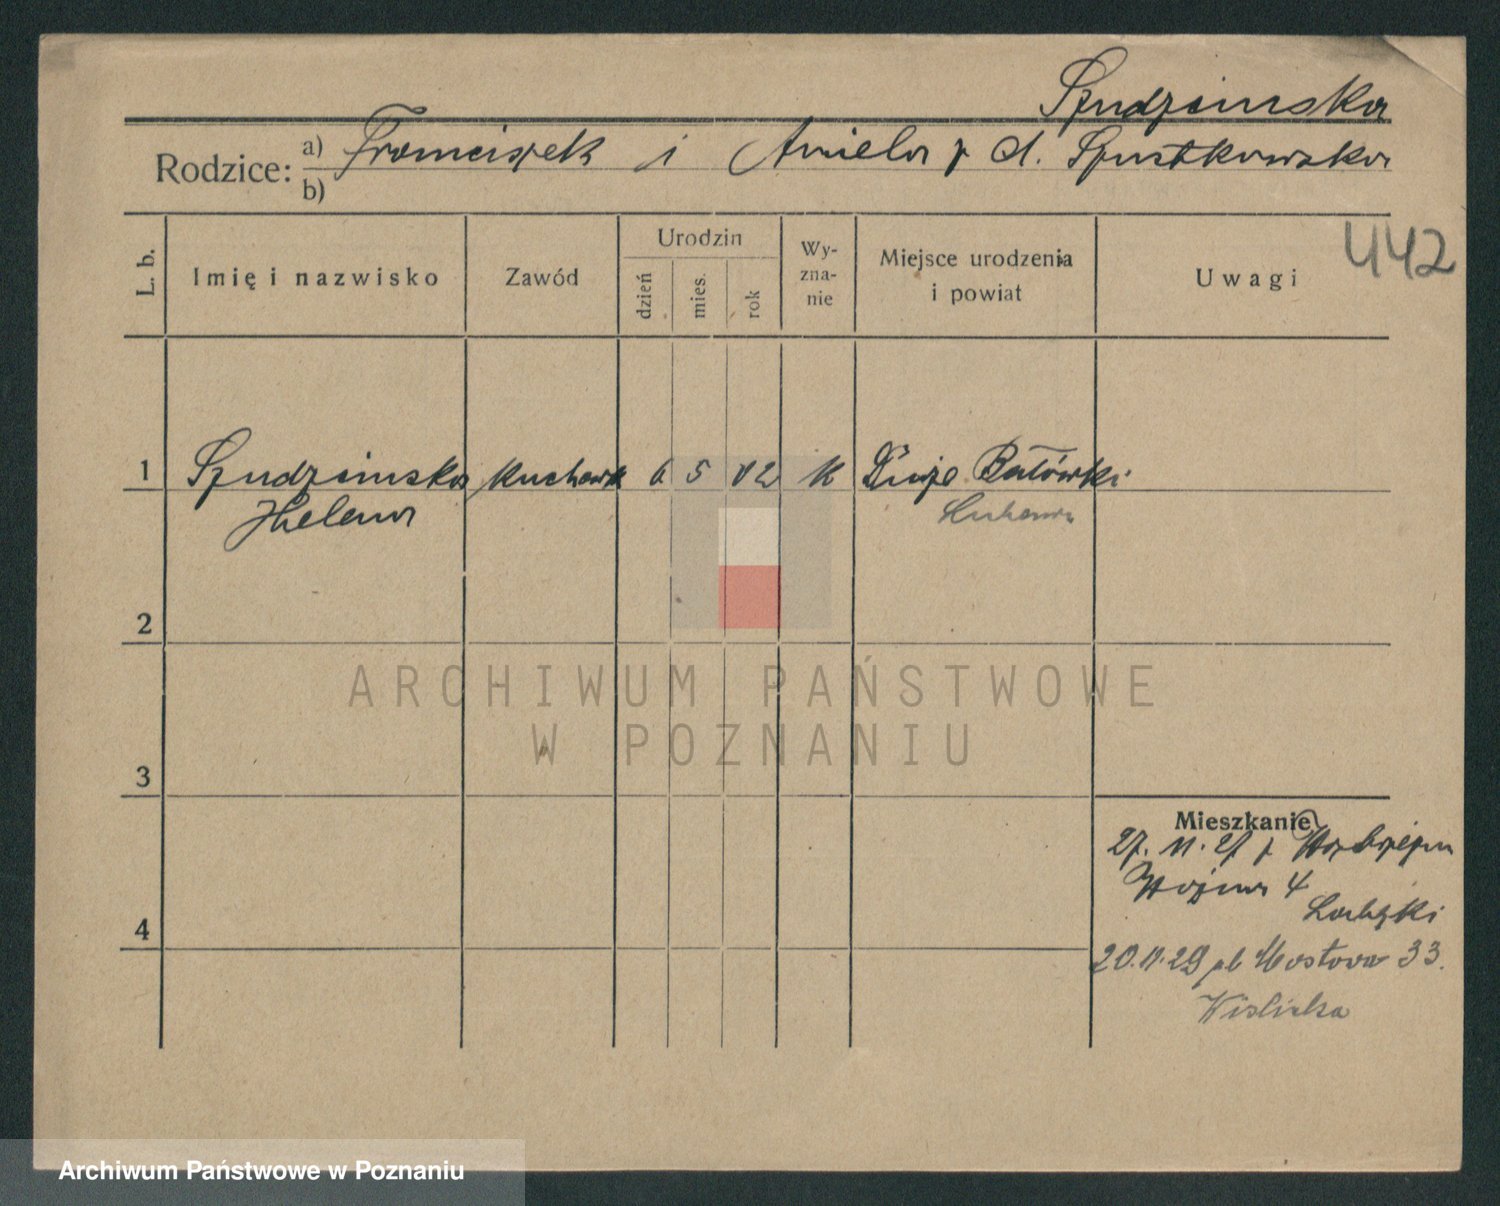 Szudzinska
Rodzice: a) Franciszek i Aniela z d. Szustkowska
b)
L. b. Imię i nazwisko Zawód Urodzin dzień mies. rok Wyznanie Miejsce urodzenia i powiat Uwagi 442
1 Szudzinska kuchark 6 5 02 K Batówki
Helena
2
3
4
Mieszkanie
27. 11. 27 z
4
20.11.29 Mostowa 33.
Wislicka
ARCHIWUM PAŃSTWOWE
W POZNANIU
Archiwum Państwowe w Poznaniu